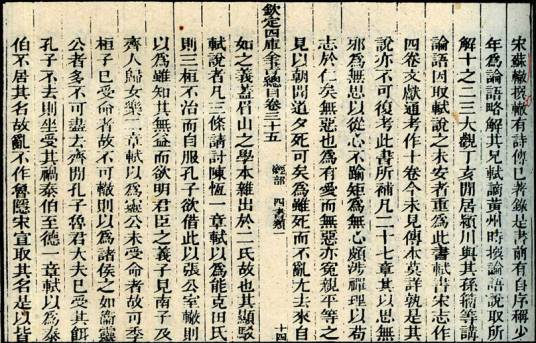 宋蘇轍撰轍有詩傳已著錄是書前有自序稱少
年爲論語略解其兄軾謫黃州時撰論語說取所
解十之二三大觀丁亥閒居潁川與其孫籀等講
論語因取軾說之未安者重爲此書軾書宋志作
四卷文獻通考作十卷今未見傳本莫詳孰是其
說亦不可復考此書所補凡二十七章其以思無
邪爲無思以從心不踰矩爲無心頗涉禪理以苟
志於仁矣無惡也爲有愛而無惡亦冤親平等之
見以朝聞道夕死可矣爲雖死而不亂尤去來自
欽定四庫全書總目卷三十五 經部 四書類一 十四
如之義葢眉山之學本雜出於二氏故也其顯駁
軾說者凡三條請討陳恆一章軾以爲能克田氏
則三桓不治而自服孔子欲借此以張公室轍則
以爲雖知其無益而欲明君臣之義子見南子及
齊人歸女樂二章軾以爲靈公未受命者故可季
桓子已受命者故不可轍則以爲諸侯之如衞靈
公者多不可盡去齊閒孔子魯君大夫已受其餌
孔子不去則坐受其禍泰伯至德一章軾以爲泰
伯不居其名故亂不作魯隱宋宣取其名是以皆